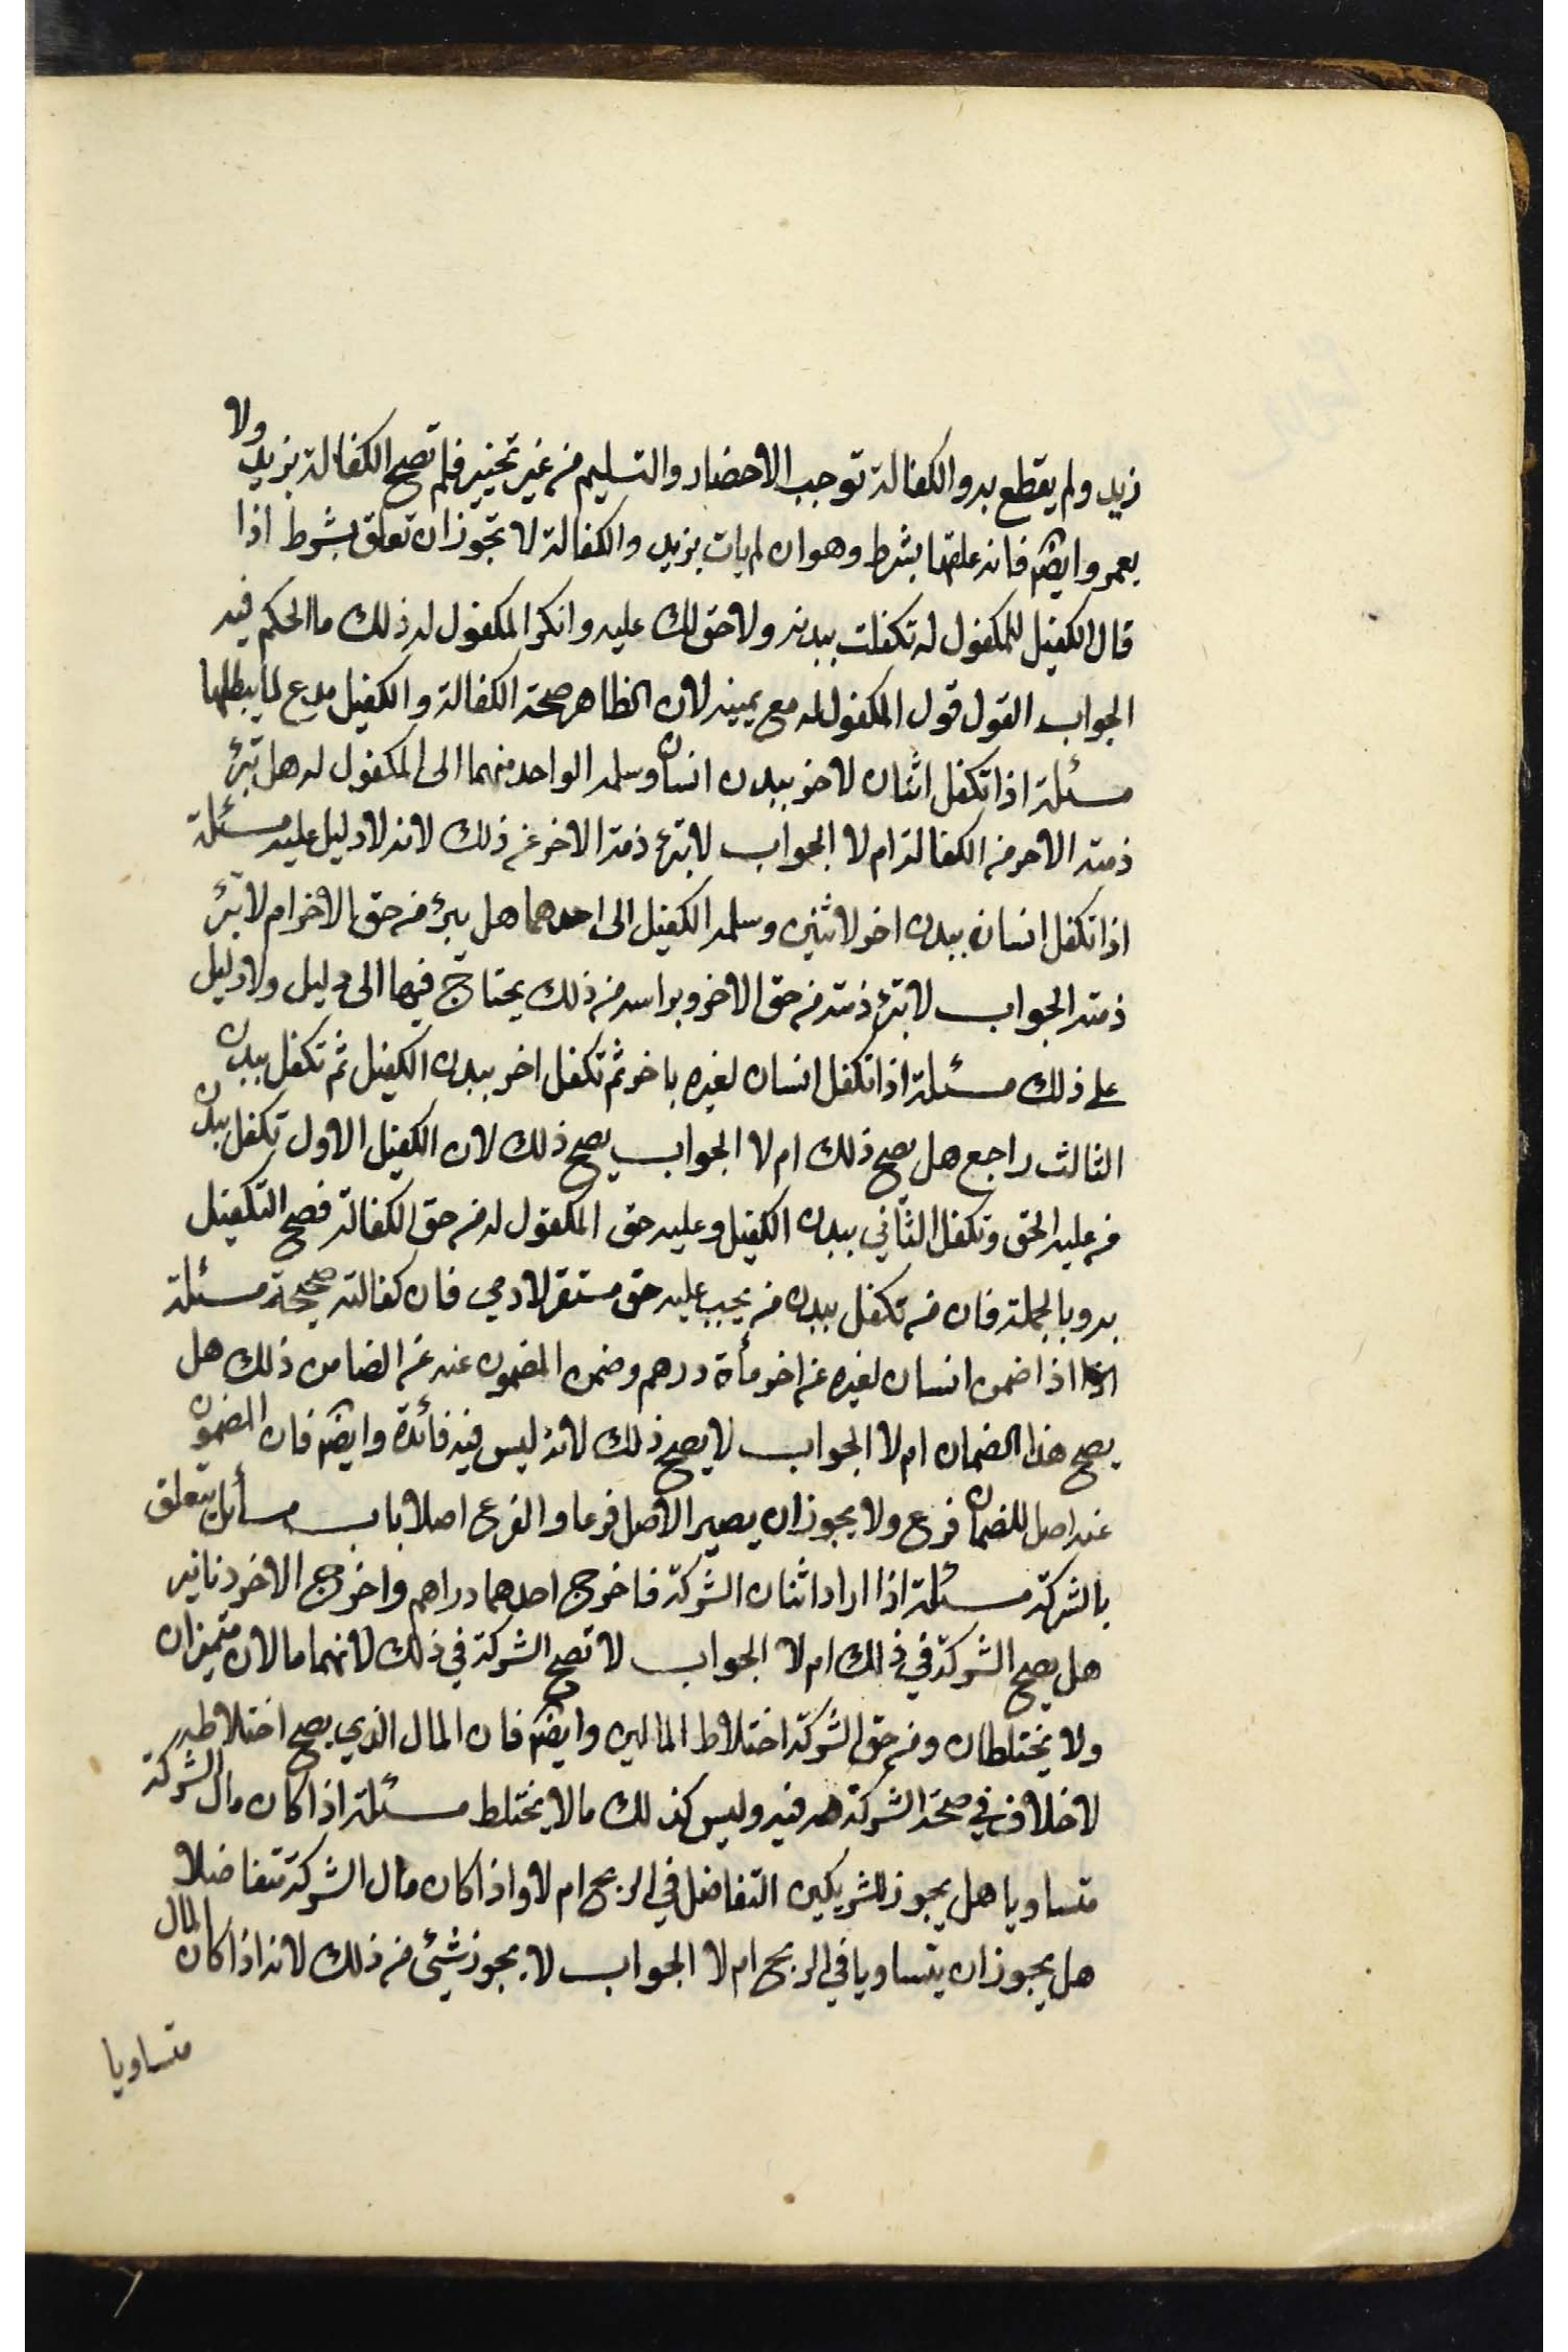 زيد ولم يقطع به والكفالة توجب الاحضار والتسليم من غير تخيير فلم تصح الكفالة بزيد ولا
بعمرو وايضا فانه علقها بشرط وهو ان لم يات بزيد والكفالة لا تجوز ان تعلق بشرط اذا
قال الكفيل للمكفول له تكفلت ببدنه ولا حق لك عليه وانكر المكفول له ذلك ما الحكم فيه
الجواب القول قول المكفول له مع يمينه لان الظاهر صحة الكفالة والكفيل مدع لما يبطلها
مسئلة اذا تكفل اثنان لاخر ببدن انسان وسلمه الواحد منهما الى المكفول له هل تبرئ
ذمته الاخر من الكفالة ام لا الجواب لا تبرئ ذمة الاخر عن ذلك لانه لا دليل عليه مسئلة
اذا تكفل انسان ببدن اخر لاثنين وسلمه الكفيل الى احدهما هل يبرئ من حق الاخر ام لا تبرئ
ذمته الجواب لا تبرئ ذمته من حق الاخر وبراسه من ذلك يحتاج فيها الى دليل ولا دليل
على ذلك مسئلة اذا تكفل انسان لغيره باخر ثم تكفل اخر ببدن الكفيل ثم تكفل ببدن
الثالث راجع هل يصح ذلك ام لا الجواب يصح ذلك لان الكفيل الاول تكفل ببدن
من عليه الحق وتكفل الثاني ببدن الكفيل وعليه حق المكفول له من حق الكفالة فصح التكفيل
به وبالجملة فان من تكفل ببدن من يجب عليه حق مستقر لادمي فان كفالته صحيحة مسئلة
اذا ضمن انسان لغيره عن اخر مأة درهم وضمن المضمون عنه عن الضامن ذلك هل
يصح هذا الضمان ام لا الجواب لا يصح ذلك لانه ليس فيه فائدة وايضا فان المضمون
عنه اصل للضمان فرع ولا يجوز ان يصير الاصل فرعا والفرع اصلا باب مسأيل يتعلق
بالشركة مسئلة اذا اراد اثنان الشركة فاخرج احدهما دراهم واخرج الاخر دنانير
هل يصح الشركة في ذلك ام لا الجواب لا تصح الشركة في ذلك لانهما مالان متميزان
ولا يختلطان ومن حق الشركة اختلاط المالين وايضا فان المال الذي يصح اختلاطه
لا خلاف في صحة الشركة فيه وليس كذلك ما لا يختلط مسئلة اذا كان مال الشركة
متساويا هل يجوز للشريكين التفاضل في الربح ام لا واذا كان مال الشركة متفاضلا
هل يجوز ان يتساويا في الربح ام لا الجواب لا يجوز شيئ من ذلك لانه اذا كان المال
متساويا